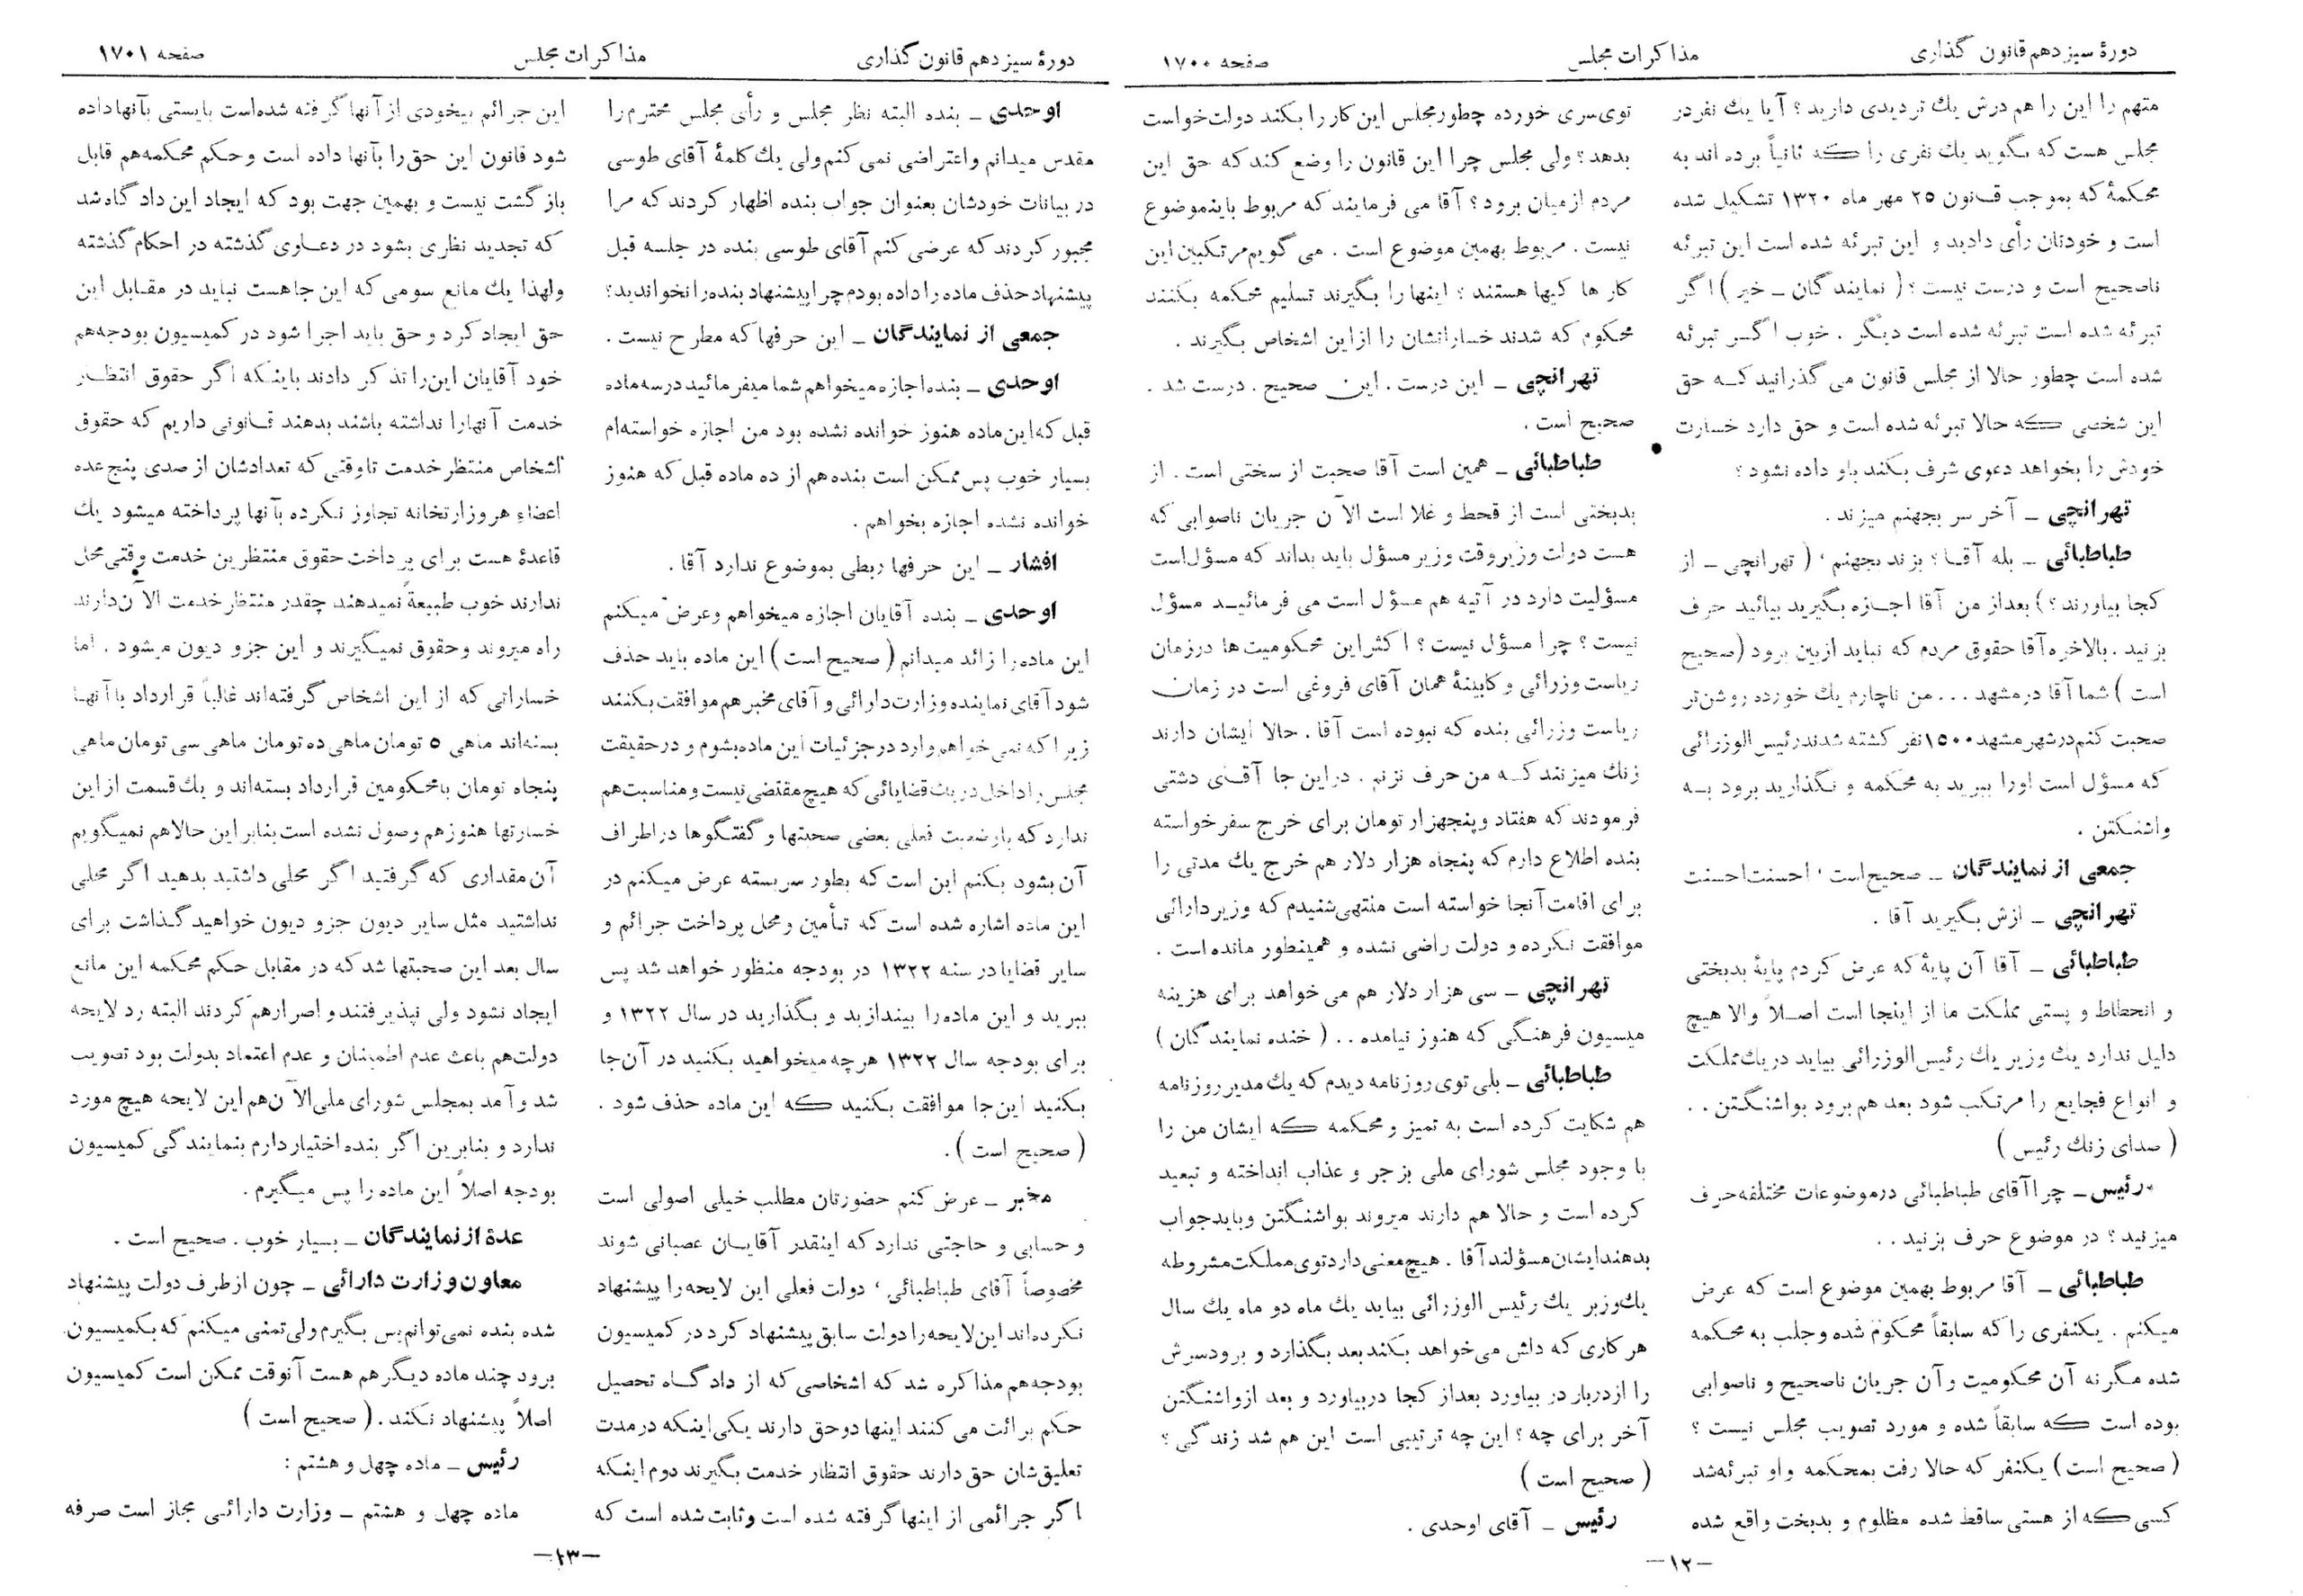 دورهٔ سیزدهم قانون گذاری
مذاکرات مجلس
صفحه ۱۷۰۰
متهم را این را هم درش یك تردیدی دارید؟ آیا یك نفر در
مجلس هست که بگوید یك نفری را که ثانیاً برده اند به
محکمهٔ که بموجب قانون ۲۵ مهر ماه ۱۳۲۰ تشکیل شده
است و خودتان رأی دادید و این تبرئه شده است این تبرئه
ناصحیح است و درست نیست؟ (نمایندگان ـ خیر) اگر
تبرئه شده است تبرئه شده است دیگر . خوب اگر تبرئه
شده است چطور حالا از مجلس قانون می گذرانید که حق
این شخصی که حالا تبرئه شده است و حق دارد خسارت
خودش را بخواهد دعوی شرف بکند باو داده نشود؟
تهرانچی ـ آخر سر بجهنم میزند .
طباطبائی ـ بله آقا؟ بزند بجهنم، (تهرانچی ـ از
کجا بیاورند؟) بعداز من آقا اجازه بگیرید بیائید حرف
بزنید . بالاخره آقا حقوق مردم که نباید ازبین برود (صحیح
است) شما آقا در مشهد ... من ناچارم یك خورده روشن‌تر
صحبت کنم در شهر مشهد ۱۵۰۰ نفر کشته شدند رئیس الوزرائی
که مسؤل است اورا ببرید به محکمه و نگذارید برود به
واشنگتن .
جمعی از نمایندگان ـ صحیح است، احسنت احسنت
تهرانچی ـ ازش بگیرید آقا .
طباطبائی ـ آقا آن پایهٔ که عرض کردم پایهٔ بدبختی
و انحطاط و پستی مملکت ما از اینجا است اصلاً والا هیچ
دلیل ندارد یك وزیر یك رئیس الوزرائی بیاید در یك مملکت
و انواع فجایع را مرتکب شود بعد هم برود بواشنگتن . .
(صدای زنك رئیس)
رئیس ـ چرا آقای طباطبائی درموضوعات مختلفه حرف
میزنید؟ در موضوع حرف بزنید . .
طباطبائی ـ آقا مربوط بهمین موضوع است که عرض
میکنم . یکنفری را که سابقاً محکوم شده و جلب به محکمه
شده مگر نه آن محکومیت و آن جریان ناصحیح و ناصوابی
بوده است که سابقاً شده و مورد تصویب مجلس نیست؟
(صحیح است) یکنفر که حالا رفت بمحکمه و او تبرئه شد
کسی که از هستی ساقط شده مظلوم و بدبخت واقع شده
توی سری خورده چطور مجلس این کار را بکند دولت خواست
بدهد؟ ولی مجلس چرا این قانون را وضع کند که حق این
مردم ازمیان برود؟ آقا می فرمایند که مربوط باین موضوع
نیست . مربوط بهمین موضوع است . می گویم مرتکبین این
کار ها کیها هستند؟ اینها را بگیرند تسلیم محکمه بکنند
محکوم که شدند خسارانشان را از این اشخاص بگیرند .
تهرانچی ـ این درست . این صحیح . درست شد .
صحیح است .
طباطبائی ـ همین است آقا صحبت از سختی است . از
بدبختی است از قحط و غلا است الآن جریان ناصوابی که
هست دولت وزیر وقت وزیر مسؤل باید بداند که مسؤل است
مسؤلیت دارد در آتیه هم مسؤل است می فرمائید مسؤل
نیست؟ چرا مسؤل نیست؟ اکثر این محکومیت ها درزمان
ریاست وزرائی و کابینهٔ همان آقای فروغی است در زمان
ریاست وزرائی بنده که نبوده است آقا . حالا ایشان دارند
زنك میزنند که من حرف نزنم . دراین جا آقای دشتی
فرمودند که هفتاد و پنجهزار تومان برای خرج سفر خواسته
بنده اطلاع دارم که پنجاه هزار دلار هم خرج یك مدتی را
برای اقامت آنجا خواسته است منتهی شنیدم که وزیر دارائی
موافقت نکرده و دولت راضی نشده و همینطور مانده است .
تهرانچی ـ سی هزار دلار هم می خواهد برای هزینه
میسیون فرهنگی که هنوز نیامده . . (خنده نمایندگان)
طباطبائی ـ بلی توی روزنامه دیدم که یك مدیر روزنامه
هم شکایت کرده است به تمیز و محکمه که ایشان من را
با وجود مجلس شورای ملی بزجر و عذاب انداخته و تبعید
کرده است و حالا هم دارند میروند بواشنگتن و باید جواب
بدهند ایشان مسؤلند آقا . هیچ معنی دارد توی مملکت مشروطه
یك وزیر یك رئیس الوزرائی بیاید یك ماه دو ماه یك سال
هر کاری که داش می‌خواهد بکند بعد بگذارد و برود سرش
را ازدربار در بیاورد بعداز کجا دربیاورد و بعد ازواشنگتن
آخر برای چه؟ این چه ترتیبی است این هم شد زندگی؟
(صحیح است)
رئیس ـ آقای اوحدی .
ـ۱۲ـ
دورهٔ سیزدهم قانون گذاری
مذاکرات مجلس
صفحه ۱۷۰۱
اوحدی ـ بنده البته نظر مجلس و رأی مجلس محترم را
مقدس میدانم و اعتراضی نمی کنم ولی یك کلمهٔ آقای طوسی
در بیانات خودشان بعنوان جواب بنده اظهار کردند که مرا
مجبور کردند که عرضی کنم آقای طوسی بنده در جلسه قبل
پیشنهاد حذف ماده را داده بودم چرا پیشنهاد بنده را نخواندید؟
جمعی از نمایندگان ـ این حرفها که مطرح نیست .
اوحدی ـ بنده اجازه میخواهم شما میفرمائید در سه ماده
قبل که این ماده هنوز خوانده نشده بود من اجازه خواسته‌ام
بسیار خوب پس ممکن است بنده هم از ده ماده قبل که هنوز
خوانده نشده اجازه بخواهم .
افشار ـ این حرفها ربطی بموضوع ندارد آقا .
اوحدی ـ بنده آقایان اجازه میخواهم و عرض میکنم
این ماده را زائد میدانم (صحیح است) این ماده باید حذف
شود آقای نماینده وزارت دارائی و آقای مخبر هم موافقت بکنند
زیرا که نمی خواهم وارد در جزئیات این ماده بشوم و در حقیقت
مجلس را داخل در یك قضایائی که هیچ مقتضی نیست و مناسبت هم
ندارد که باوضعیت فعلی بعضی صحبتها و گفتگوها دراطراف
آن بشود بکنم این است که بطور سربسته عرض میکنم در
این ماده اشاره شده است که تأمین و محل پرداخت جرائم و
سایر قضایا در سنه ۱۳۲۲ در بودجه منظور خواهد شد پس
ببرید و این ماده را بیندازید و بگذارید در سال ۱۳۲۲ و
برای بودجه سال ۱۳۲۲ هرچه میخواهید بکنید در آن‌جا
بکنید این‌جا موافقت بکنید که این ماده حذف شود .
(صحیح است) .
مخبر ـ عرض کنم حضورتان مطلب خیلی اصولی است
و حسابی و حاجتی ندارد که اینقدر آقایان عصبانی شوند
مخصوصاً آقای طباطبائی، دولت فعلی این لایحه را پیشنهاد
نکرده‌اند این لایحه را دولت سابق پیشنهاد کرد در کمیسیون
بودجه هم مذاکره شد که اشخاصی که از دادگاه تحصیل
حکم برائت می کنند اینها دو حق دارند یکی اینکه در مدت
تعلیق‌شان حق دارند حقوق انتظار خدمت بگیرند دوم اینکه
اگر جرائمی از اینها گرفته شده است و ثابت شده است که
این جرائم بیخودی از آنها گرفته شده‌است بایستی بآنها داده
شود قانون این حق را بآنها داده است و حکم محکمه هم قابل
بازگشت نیست و بهمین جهت بود که ایجاد این دادگاه شد
که تجدید نظری بشود در دعاوی گذشته در احکام گذشته
ولهذا یك مانع سومی که این جاهست نباید در مقابل این
حق ایجاد کرد و حق باید اجرا شود در کمیسیون بودجه هم
خود آقایان این را تذکر دادند باینکه اگر حقوق انتظار
خدمت آنهارا نداشته باشند بدهند قانونی داریم که حقوق
اشخاص منتظر خدمت تاوقتی که تعدادشان از صدی پنج عده
اعضاء هر وزارتخانه تجاوز نکرده بآنها پرداخته میشود یك
قاعدهٔ هست برای پرداخت حقوق منتظرین خدمت وقتی محل
ندارند خوب طبیعةً نمیدهند چقدر منتظر خدمت الآن دارند
راه میروند و حقوق نمیگیرند و این جزو دیون میشود . اما
خساراتی که از این اشخاص گرفته‌اند غالباً قرارداد باآنها
بسته‌اند ماهی ۵ تومان ماهی ده تومان ماهی سی تومان ماهی
پنجاه تومان بامحکومین قرارداد بسته‌اند و یك قسمت از این
خسارتها هنوز هم وصول نشده است بنابر این حالا هم نمیگویم
آن مقداری که گرفتید اگر محلی داشتید بدهید اگر محلی
نداشتید مثل سایر دیون جزو دیون خواهید گذاشت برای
سال بعد این صحبتها شد که در مقابل حکم محکمه این مانع
ایجاد نشود ولی نپذیرفتند و اصرار هم کردند البته رد لایحه
دولت هم باعث عدم اطمینان و عدم اعتماد بدولت بود تصویب
شد و آمد بمجلس شورای ملی الآن هم این لایحه هیچ مورد
ندارد و بنابرین اگر بنده اختیار دارم بنمایندگی کمیسیون
بودجه اصلاً این ماده را پس میگیرم .
عدهٔ از نمایندگان ـ بسیار خوب . صحیح است .
معاون وزارت دارائی ـ چون از طرف دولت پیشنهاد
شده بنده نمی‌توانم پس بگیرم ولی تمنی میکنم که بکمیسیون
برود چند ماده دیگر هم هست آنوقت ممکن است کمیسیون
اصلاً پیشنهاد نکند . (صحیح است)
رئیس ـ ماده چهل و هشتم :
ماده چهل و هشتم ـ وزارت دارائی مجاز است صرفه
ـ۱۳ـ